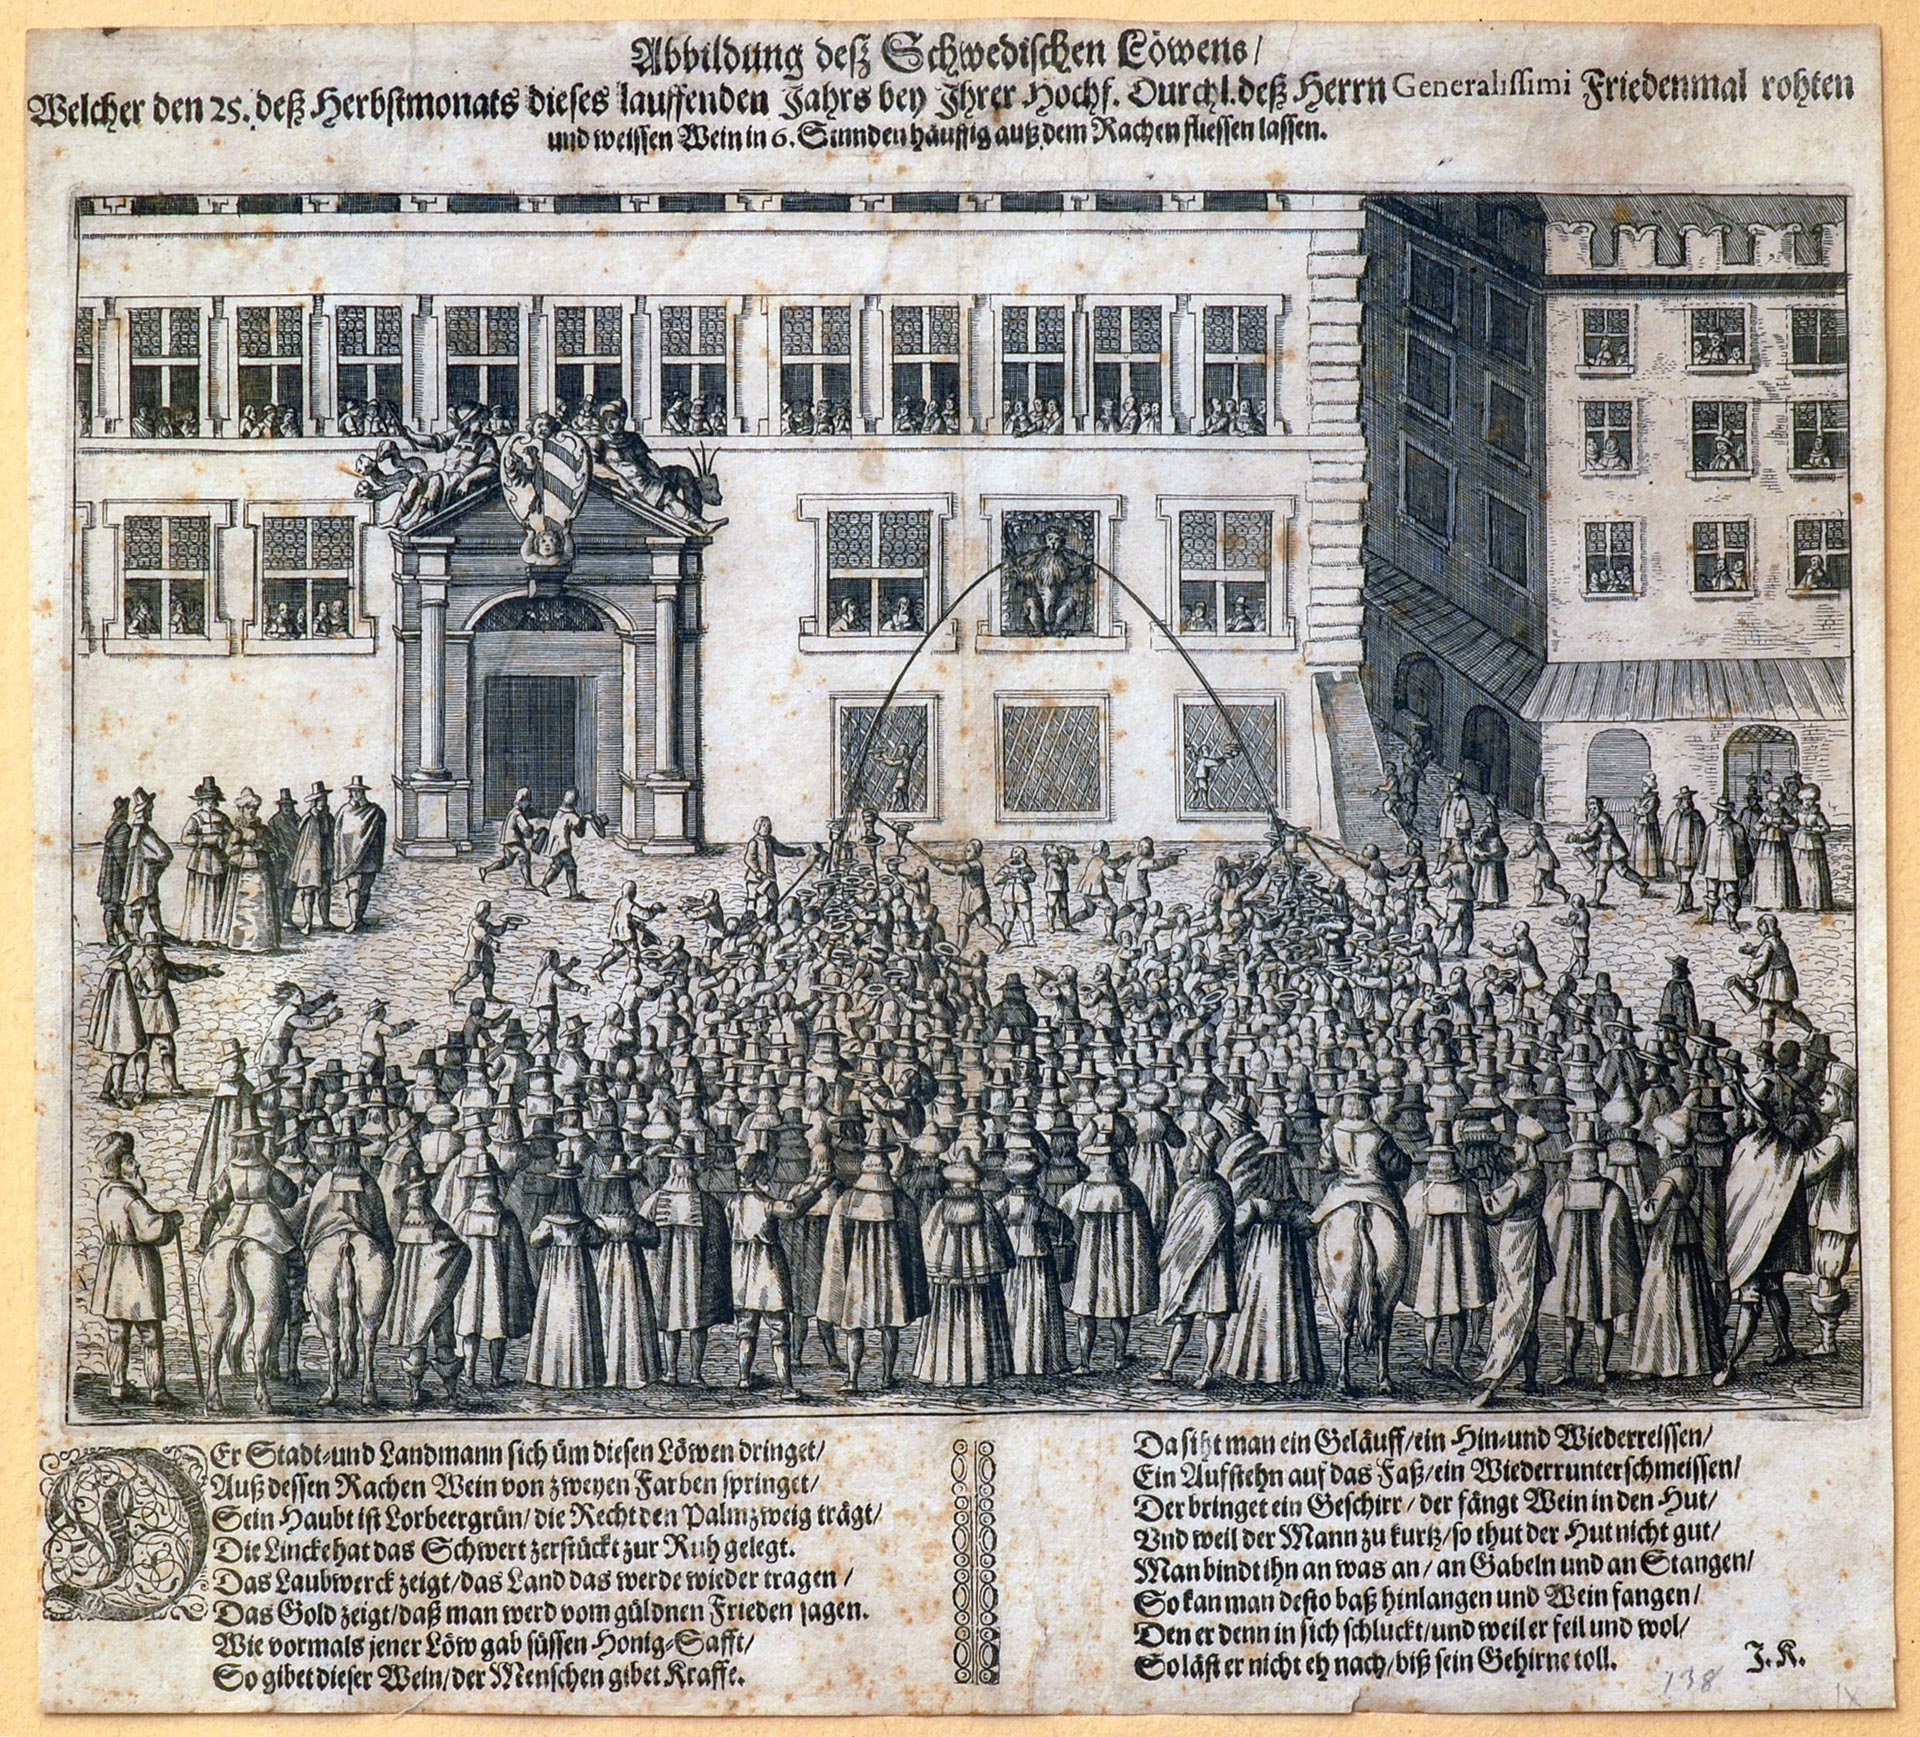 Abbildung deß Schwedischen Löwens/
Welcher den 25. deß Herbstmonats dieses lauffenden Jahrs bey Jhrer Hochf. Durchl. deß Herrn Generalissimi Friedenmal rohten
und weissen Wein in 6. Stunden häuffig auß dem Rachen fliessen lassen.
DEr Stadt-und Landmann sich üm diesen Löwen dringet/
Auß dessen Rachen Wein von zweyen Farben springet/
Sein Haubt ist Lorbeergrün/die Recht den Palmzweig trägt/
Die Lincke hat das Schwert zerstückt zur Ruh gelegt.
Das Laubwerck zeigt/das Land das werde wieder tragen/
Das Gold zeigt/daß man werd vom güldnen Frieden sagen.
Wie vormals jener Löw gab süssen Honig-Safft/
So gibet dieser Wein/der Menschen gibet Kraffe.
Da siht man ein Geläuff/ein Hin-und Wiederreissen/
Ein Aufstehn auf das Faß/ein Wiederrunterschmeissen/
Der bringet ein Geschirr/der fängt Wein in den Hut/
Vnd weil der Mann zu kurtz/so thut der Hut nicht gut/
Man bindt ihn an was an/an Gabeln und an Stangen/
So kan man desto baß hinlangen und Wein fangen/
Den er denn in sich schluckt/und weil er feil und wol/
So läst er nicht eh nach/biß sein Gehirne toll.
J. K.
138
IX